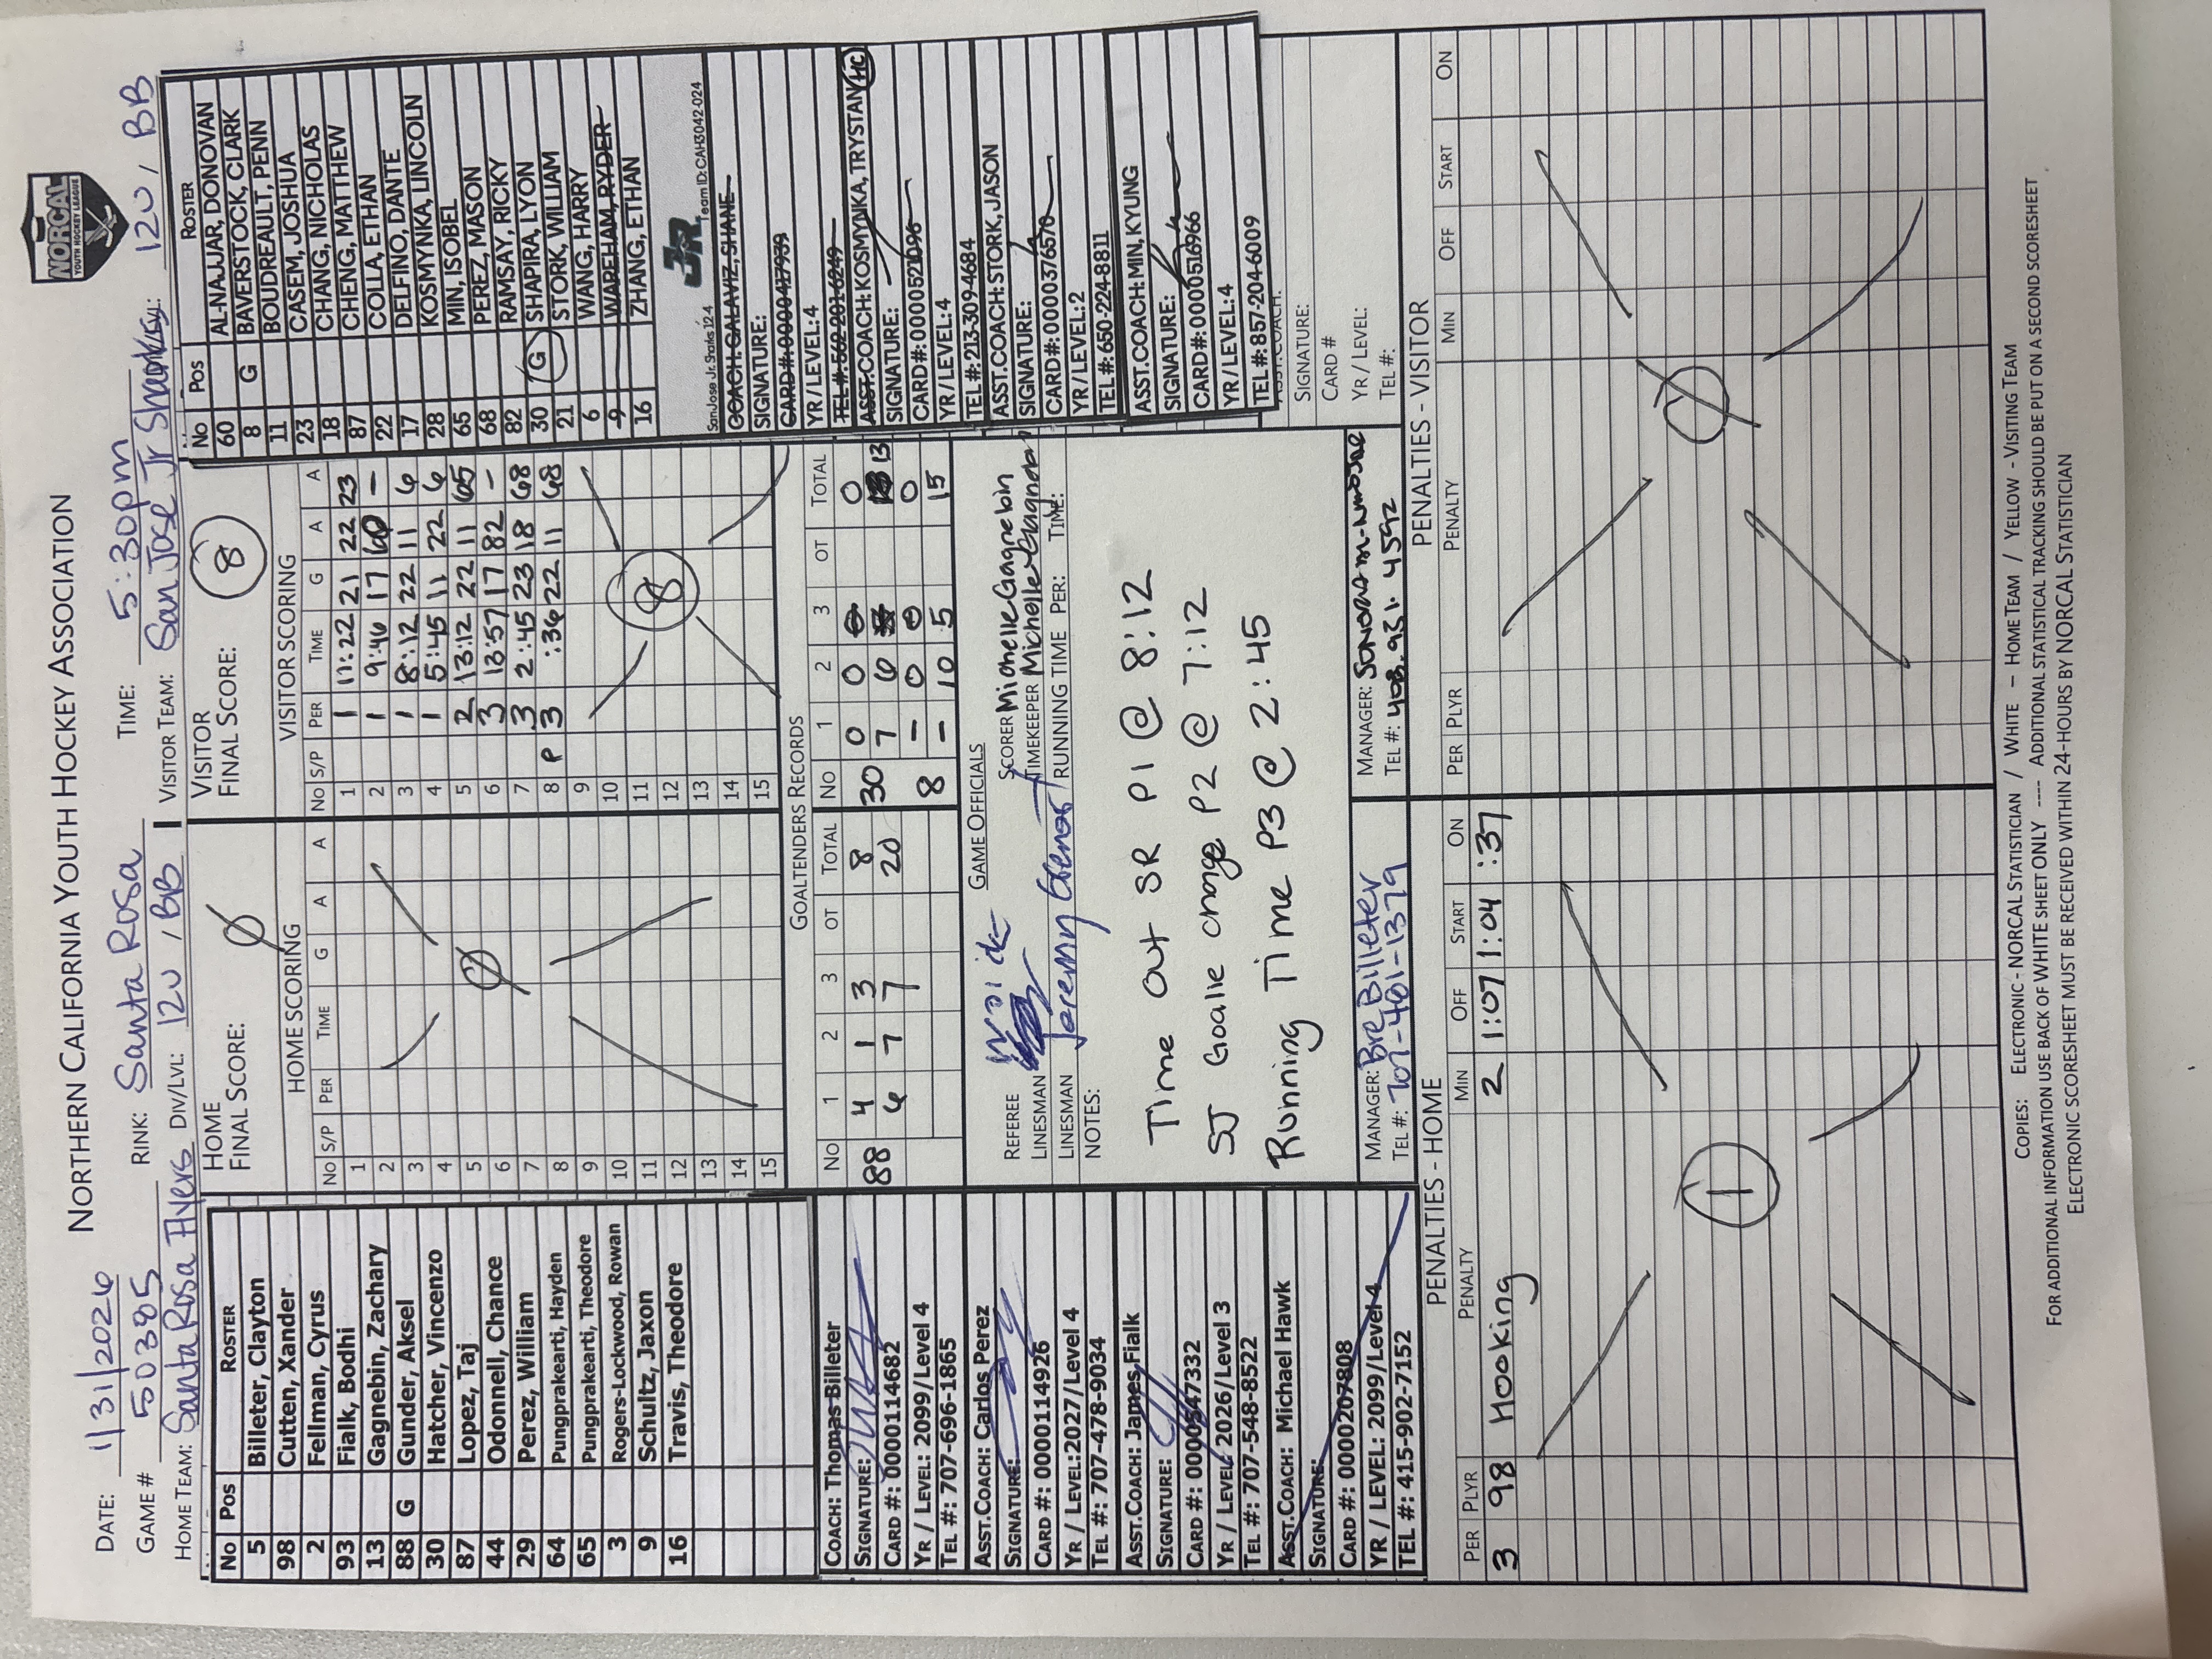 NORTHERN CALIFORNIA YOUTH HOCKEY ASSOCIATION
NORCAL
YOUTH HOCKEY LEAGUE
DATE: 1/31/2026 RINK: Santa Rosa TIME: 5:30pm
GAME # 50385
HOME TEAM: Santa Rosa Flyers DIV/LVL: 12U / BB VISITOR TEAM: San Jose Jr Sharks 12U / BB
No Pos ROSTER
5 Billeter, Clayton
98 Cutten, Xander
2 Fellman, Cyrus
93 Fialk, Bodhi
13 Gagnebin, Zachary
88 G Gunder, Aksel
30 Hatcher, Vincenzo
87 Lopez, Taj
44 Odonnell, Chance
29 Perez, William
64 Pungprakearti, Hayden
65 Pungprakearti, Theodore
3 Rogers-Lockwood, Rowan
9 Schultz, Jaxon
16 Travis, Theodore
COACH: Thomas Billeter
SIGNATURE:
CARD #: 0000114682
YR / LEVEL: 2099/Level 4
TEL #: 707-696-1865
ASST.COACH: Carlos Perez
SIGNATURE:
CARD #: 0000114926
YR / LEVEL:2027/Level 4
TEL #: 707-478-9034
ASST.COACH: James Fialk
SIGNATURE:
CARD #: 0000547332
YR / LEVEL 2026/Level 3
TEL #: 707-548-8522
ASST.COACH: Michael Hawk
SIGNATURE:
CARD #: 0000207808
YR / LEVEL: 2099/Level 4
TEL #: 415-902-7152
HOME
FINAL SCORE: 0
HOME SCORING
No S/P PER TIME G A A
1
2
3
4
5
6
7
8
9
10
11
12
13
14
15
0
VISITOR
FINAL SCORE: 8
VISITOR SCORING
No S/P PER TIME G A A
1 1 11:22 21 22 23
2 1 9:46 17 60 –
3 1 8:12 22 11 6
4 1 5:45 11 22 6
5 2 13:12 22 11 65
6 3 13:57 17 82 –
7 3 2:45 23 18 68
8 P 3 :36 22 11 68
9
10
11
12
13
14
15
8
GOALTENDERS RECORDS
No 1 2 3 OT TOTAL
88 4 1 3 8
6 7 7 20
No 1 2 3 OT TOTAL
30 0 0 0
7 6 13
8 – 0 0 0
– 10 5 15
GAME OFFICIALS
REFEREE
LINESMAN
LINESMAN Jeremy
SCORER Michelle Gagnebin
TIMEKEEPER Michelle Gagnebin
RUNNING TIME PER: TIME:
NOTES:
Time Out SR P1 @ 8:12
SJ Goalie change P2 @ 7:12
Running Time P3 @ 2:45
MANAGER: Bre Billeter
TEL #: 707-481-1379
MANAGER:
TEL #: 408.931.4592
No Pos ROSTER
60 AL-NAJJAR, DONOVAN
8 G BAVERSTOCK, CLARK
11 BOUDREAULT, PENN
23 CASEM, JOSHUA
18 CHANG, NICHOLAS
87 CHENG, MATTHEW
22 COLLA, ETHAN
17 DELFINO, DANTE
28 KOSMYNKA, LINCOLN
65 MIN, ISOBEL
68 PEREZ, MASON
82 RAMSAY, RICKY
30 G SHAPIRA, LYON
21 STORK, WILLIAM
6 WANG, HARRY
9 WAREHAM, RYDER
16 ZHANG, ETHAN
JR
San Jose Jr. Sharks 12-4 Team ID: CAH3042-024
COACH:GALAVIZ, SHANE
SIGNATURE:
CARD#:0000417939
YR/LEVEL:4
TEL#:562-201-6249
ASST.COACH:KOSMYNKA, TRYSTAN HC
SIGNATURE:
CARD#:0000521096
YR/LEVEL:4
TEL#:213-309-4684
ASST.COACH:STORK, JASON
SIGNATURE:
CARD#:0000376570
YR/LEVEL:2
TEL#:650-224-8811
ASST.COACH:MIN, KYUNG
SIGNATURE:
CARD#:0000516966
YR/LEVEL:4
TEL#:857-204-6009
ASST.COACH:
SIGNATURE:
CARD #
YR / LEVEL:
TEL #:
PENALTIES - HOME
PER PLYR PENALTY MIN OFF START ON
3 98 Hooking 2 1:07 1:04 :37
1
PENALTIES - VISITOR
PER PLYR PENALTY MIN OFF START ON
0
COPIES: ELECTRONIC - NORCAL STATISTICIAN / WHITE – HOME TEAM / YELLOW - VISITING TEAM
FOR ADDITIONAL INFORMATION USE BACK OF WHITE SHEET ONLY ---- ADDITIONAL STATISTICAL TRACKING SHOULD BE PUT ON A SECOND SCORESHEET
ELECTRONIC SCORESHEET MUST BE RECEIVED WITHIN 24-HOURS BY NORCAL STATISTICIAN